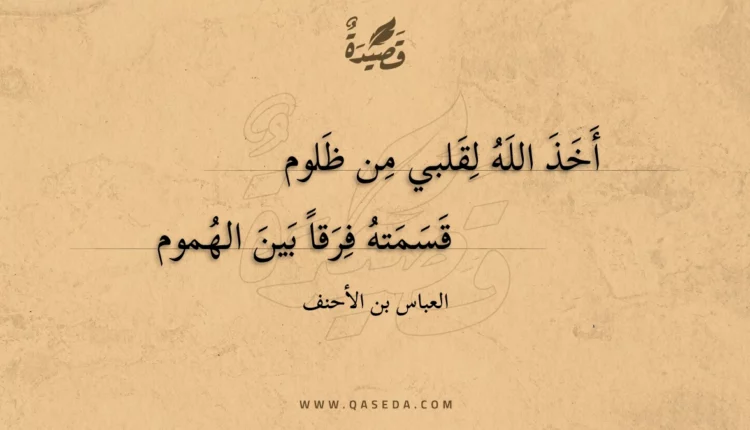 قَصِيْدَةٌ
أَخَذَ اللَهُ لِقَلبي مِن ظَلوم
قَسَمَتهُ فِرَقاً بَينَ الهُموم
العباس بن الأحنف
WWW.QASEDA.COM